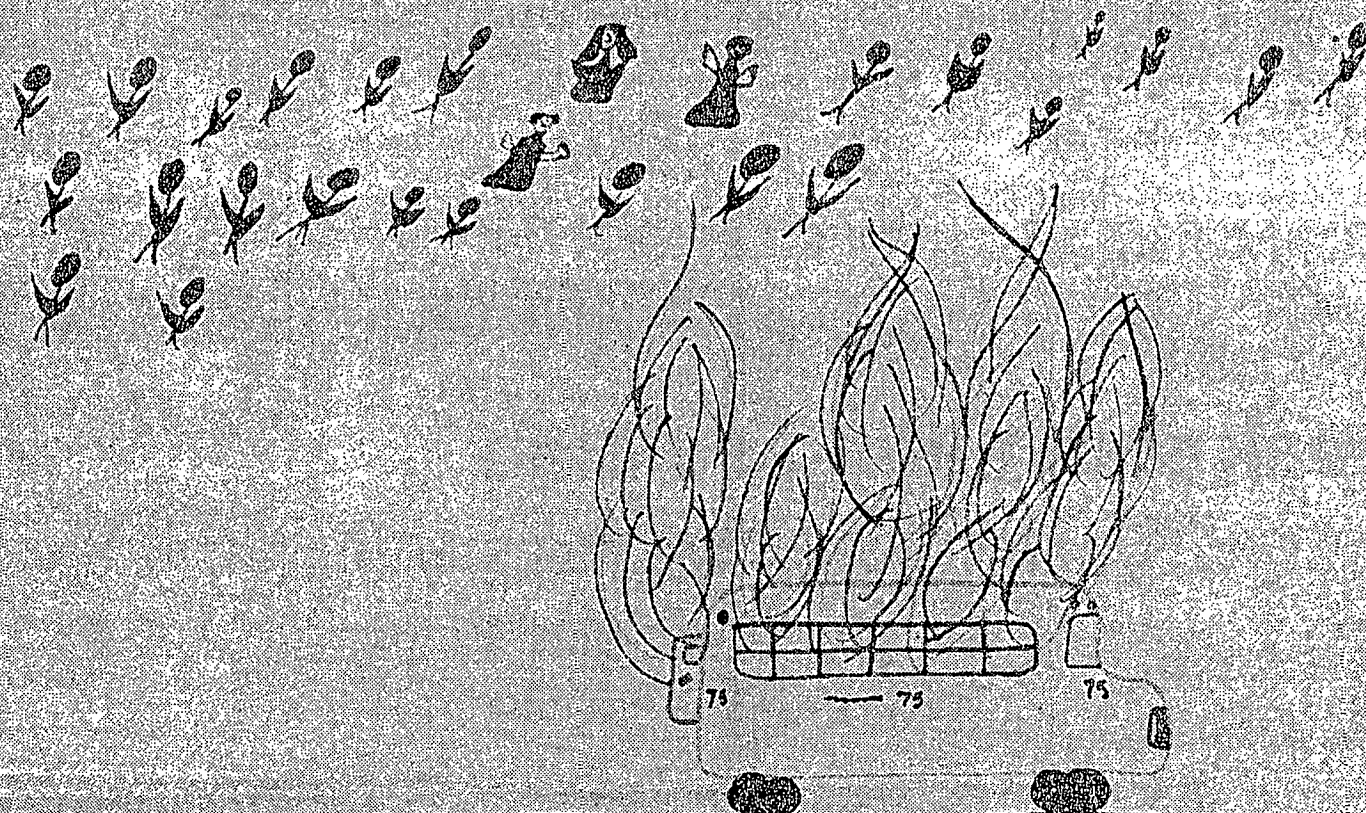 75 75 75